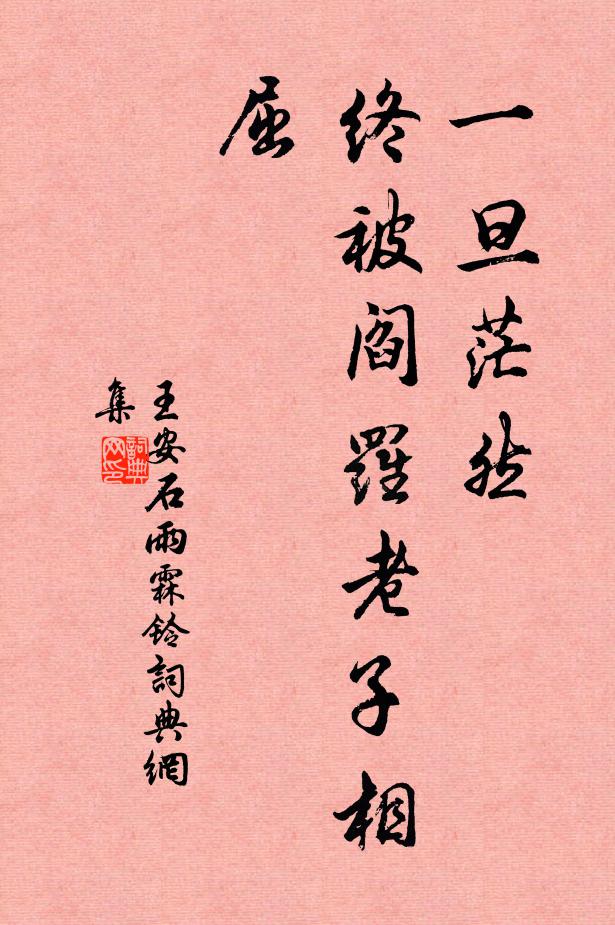 一旦茫然
終被閻羅老子相
屈
王安石雨霖鈴詞典網
集
詞典網印